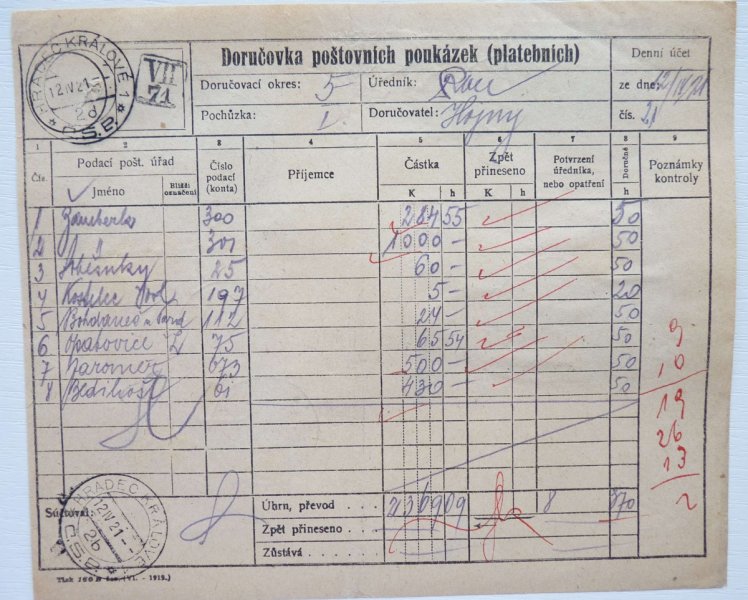 HRADEC KRÁLOVÉ 1
12 IV 21
2b
Č.S.P.
VII
71
Doručovka poštovních poukázek (platebních)
Denní účet
Doručovací okres: 5 Úředník:
ze dne: 12/IV 21
Pochůzka: I. Doručovatel: Hojny
čís. 21
1 2 3 4 5 6 7 8 9
Čís. Podací pošt. úřad Jméno Bližší označení Číslo podací (konta) Příjemce Částka K h Zpět přineseno K h Potvrzení úředníka, nebo opatření Doručné h Poznámky kontroly
1 300 284 55 50
2 " 301 1000 - 50
3 25 60 - 50
4 Kostelec 197 5 - 20
5 Bohdaneč 112 24 - 50
6 Opatovice 75 65 54 50
7 Jaroměř 673 500 - 50
8 61 430 - 50
9
10
19
26
13
2
Úhrn, převod 2369 09 8 370
Súčtoval:
Zpět přineseno
Zůstává
HRADEC KRÁLOVÉ
12 IV 21
2b
Č.S.P.
Tisk 160 B čes. (VI. - 1919.)